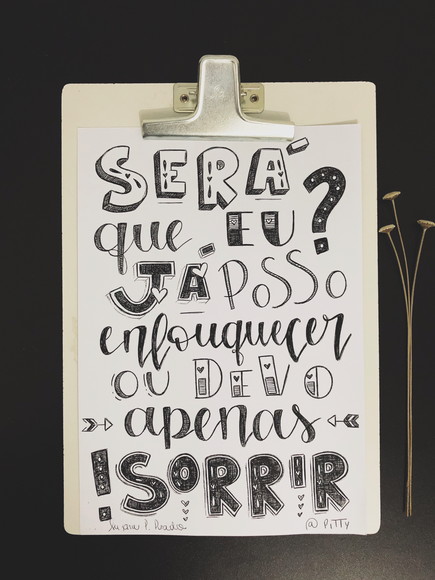 SERÁ
que EU?
JÁ POSSO
enlouquecer
OU DEVO
apenas
!SORRIR
@ PITTY